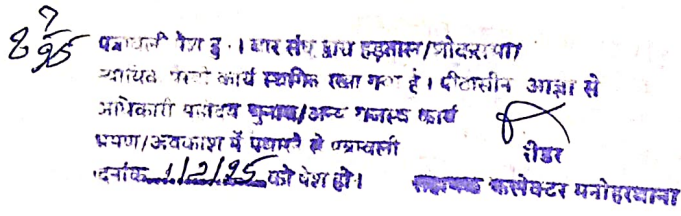 8 7/95 पत्रावली पेश हु । बार संघ द्वारा हड़ताल/शोकसभा
न्यायिक कार्य स्थगित रखा गया है । पीठासीन आज्ञा से
अधिकारी पंचायत चुनाव/अन्य राजस्व कार्य
भ्रमण/अवकाश में पधारने से पत्रावली
रीडर
दिनांक 1/2/95 को पेश हो ।
सहायक कलेक्टर मनोहरथाना